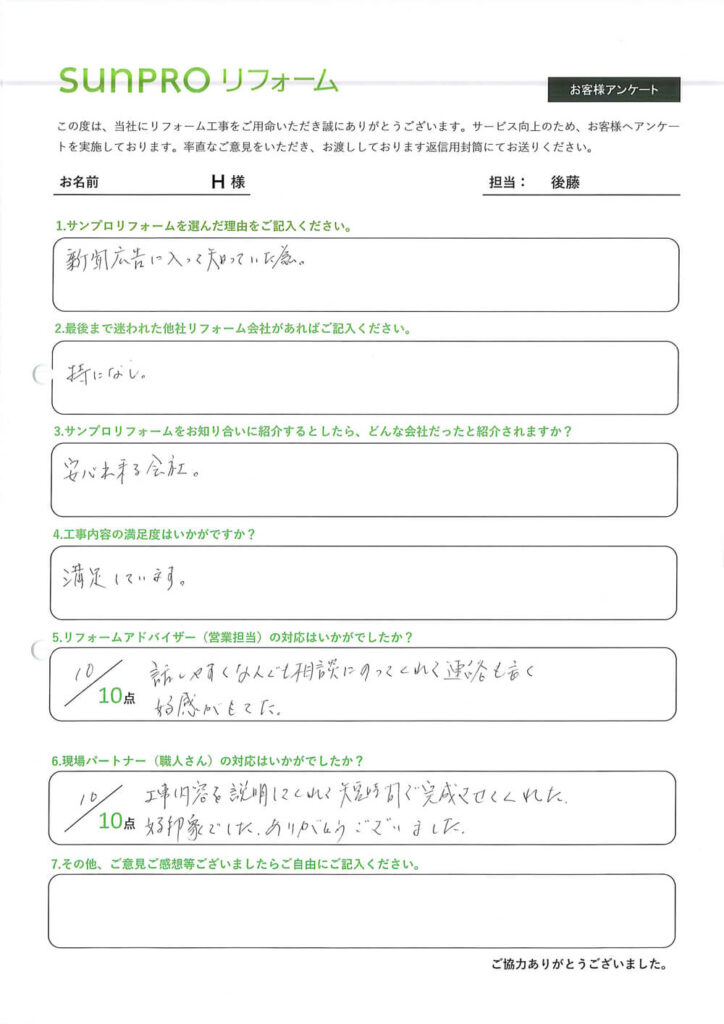 sunPRO リフォーム
お客様アンケート
この度は、当社にリフォーム工事をご用命いただき誠にありがとうございます。サービス向上のため、お客様へアンケー
トを実施しております。率直なご意見をいただき、お渡ししております返信用封筒にてお送りください。
お名前 H 様 担当： 後藤
1.サンプロリフォームを選んだ理由をご記入ください。
新聞広告に入って知っていた為。
2.最後まで迷われた他社リフォーム会社があればご記入ください。
特になし。
3.サンプロリフォームをお知り合いに紹介するとしたら、どんな会社だったと紹介されますか？
安心出来る会社。
4.工事内容の満足度はいかがですか？
満足しています。
5.リフォームアドバイザー（営業担当）の対応はいかがでしたか？
10/10点 話しやすくなんでも相談にのってくれて連絡も良く
好感がもてた。
6.現場パートナー（職人さん）の対応はいかがでしたか？
10/10点 工事内容を説明してくれて短時間で完成させてくれた。
好印象でした。ありがとうございました。
7.その他、ご意見ご感想等ございましたらご自由にご記入ください。
ご協力ありがとうございました。